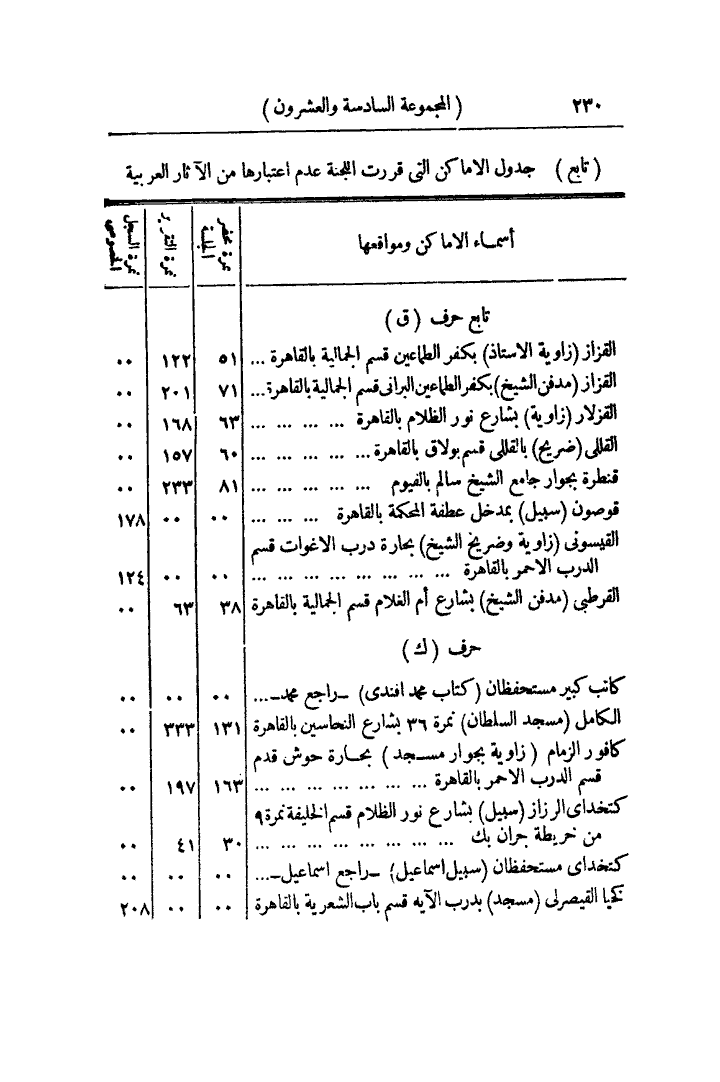 ٢٣٠ (المجموعة السادسة والعشرون)
(تابع) جدول الاماكن التى قررت اللجنة عدم اعتبارها من الآثار العربية
أسماء الاماكن ومواقعها نمرة محضر الجلسة نمرة التقرير نمرة السجل الخصوصى
تابع حرف (ق)
القزاز (زاوية الاستاذ) بكفر الطماعين قسم الجمالية بالقاهرة ... ٥١ ١٢٢ ٠٠
القزاز (مدفن الشيخ) بكفر الطماعين البرانى قسم الجمالية بالقاهرة... ٧١ ٢٠١ ٠٠
القزلار (زاوية) بشارع نور الظلام بالقاهرة ... ... ... ... ٦٣ ١٦٨ ٠٠
القللى (ضريح) بالقللى قسم بولاق بالقاهرة ... ... ... ... ... ٦٠ ١٥٧ ٠٠
قنطرة بجوار جامع الشيخ سالم بالفيوم ... ... ... ... ... ٨١ ٢٣٣ ٠٠
قوصون (سبيل) بمدخل عطفة المحكمة بالقاهرة ... ... ... ٠٠ ٠٠ ١٧٨
القيسونى (زاوية وضريح الشيخ) بحارة درب الاغوات قسم
الدرب الاحمر بالقاهرة ... ... ... ... ... ... ... ... ٠٠ ٠٠ ١٢٤
القرطبى (مدفن الشيخ) بشارع أم الغلام قسم الجمالية بالقاهرة ٣٨ ٦٣ ٠٠
حرف (ك)
كاتب كبير مستحفظان (كتاب محمد افندى) -راجع محمد-... ٠٠ ٠٠ ٠٠
الكامل (مسجد السلطان) نمرة ٣٦ بشارع النحاسين بالقاهرة ١٣١ ٣٣٣ ٠٠
كافور الزمام (زاوية بجوار مسجد) بحارة حوش قدم
قسم الدرب الاحمر بالقاهرة ... ... ... ... ... ... ... ١٦٣ ١٩٧ ٠٠
كتخداى الرزاز (سبيل) بشارع نور الظلام قسم الخليفة نمرة ٩
من خريطة جران بك ... ... ... ... ... ... ... ... ٣٠ ٤١ ٠٠
كتخداى مستحفظان (سبيل اسماعيل) -راجع اسماعيل-... ٠٠ ٠٠ ٠٠
كخيا القيصرلى (مسجد) بدرب الآيه قسم باب الشعرية بالقاهرة ٠٠ ٠٠ ٢٠٨